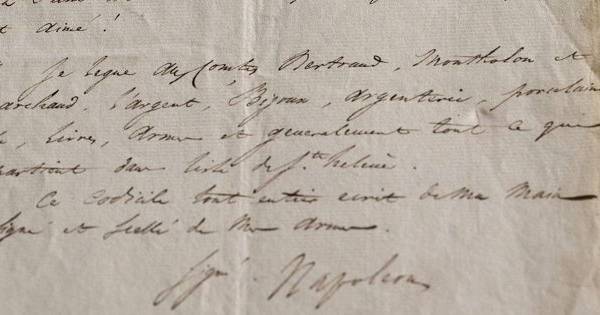 t aimé !
Je legue aux Comtes Bertrand, Montholon et
archand, l'argent, Bijoux, argenterie, porcelain
e, Livres, Armes et generalement tout ce qui
partient dans l'isle de S.te helene.
Ce Codicile tout entier ecrit de ma Main
signé et scellé de Mes Armes.
signé Napoleon